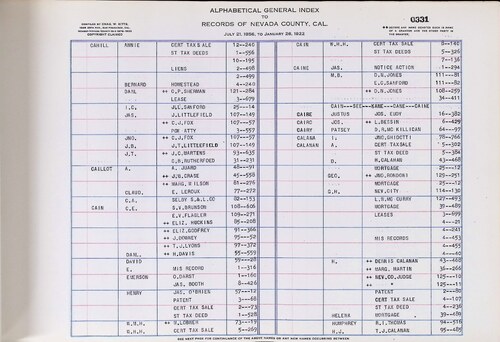 ALPHABETICAL GENERAL INDEX
TO
RECORDS OF NEVADA COUNTY, CAL.
JULY 21, 1856, TO JANUARY 28, 1932
0331
COPYRIGHT CLAIMED
CAHILL ANNIE CERT TAX SALE 12--240
ST TAX DEEDS 1--556
10--195
LIENS 2--498
2--499
BERNARD HOMESTEAD 4--240
DANL ++ O.P.SHERMAN 121--284
LEASE 3--699
I.C. J.E.SANFORD 25--14
JAS. J.LITTLEFIELD 107--149
++ C.J.FOX 107--57
POW ATTY 3--557
JNO. ++ C.J.FOX 107--57
J.B. J.T.LITTLEFIELD 107--149
J.T. ++ J.C.MARTENS 93--635
C.B.RUTHERFOED 31--231
CAILLOT A. A. JUARD 48--91
A. ++ J.H.CRASE 45--556
++ MARG. WILSON 81--276
CLAUD. E. LEROUX 77--272
C.A. SELBY S.&L.CO 82--153
CAIN C.E. S.V.BRUNSON 108--606
E.V.FLAGLER 109--271
++ ELIZ. HOCKINS 85--208
++ ELIZ.GODFREY 91--366
++ J.DOWNEY 95--52
++ T.J.LYONS 97--372
DANL. ++ H.DAVIE 55--559
DAVID 59--28
E. MIS RECORD 1--316
EMERSON O.DARST 1--100
JAS. BOOTH 8--426
HENRY JAS. O'BRIEN 57--12
PATENT 3--68
CERT TAX SALE 2--73
ST TAX DEED 1--528
W.H.H. ++ W.LOHNER 73--19
W.H.H. CERT TAX SALE 5--269
CAIN W.H.H. CERT TAX SALE 8--140
ST TAX DEEDS 5--326
7--136
CAINE JAS. NOTICE ACTION 1--294
M.B. D.N.JONES 111--81
E.W.SCARBOROUGH 111--82
++ D.N.JONES 108--259
34--411
CAIN---SEE---KANE---CANE---CAINE
CAIRE JUSTUS JOS. EUDY 16--382
CAIRO JOS. ++ L.BETSIR 6--429
CAIRY PATSEY D.R.MC KILLIGAN 64--97
CALANA I. JNO.GHIDOTTI 78--266
CALANAN A. CERT TAX SALE 5--302
ST TAX DEED 5--384
D. H.CALANAN 43--468
MORTGAGE 25--12
GEO. ++ JNO.RONDONI 125--251
MORTGAGE 25--12
G.H. NEV.CITY 114--130
L.R.MC CURRY 127--493
MORTGAGE 39--489
LEASES 3--699
4--21
4--241
MIS RECORDS 4--453
4--455
4--40
H. ++ DENNIS CALANAN 43--468
++ MARG. MARTIN 36--266
++ NEV.CO.JUDGE 125--10
++ " 125--11
PATENT 2--80
CERT TAX SALE 4--107
ST TAX DEED 4--236
HELENA MORTGAGE 39--489
HUMPHREY R.I.THOMAS 94--516
H.J. T.J.CALANAN 95--485
SEE NEXT PAGE FOR CONTINUANCE OF THE ABOVE NAMES OR ANY NEW NAMES OCCURRING BETWEEN